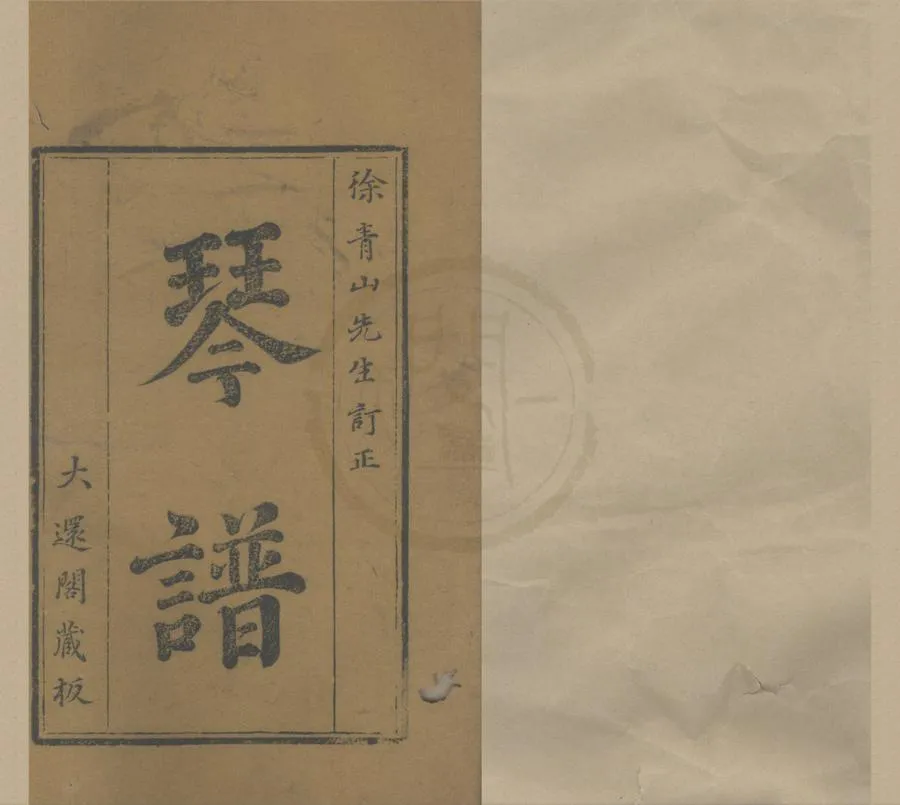 徐青山先生訂正
琴譜
大還閣藏板